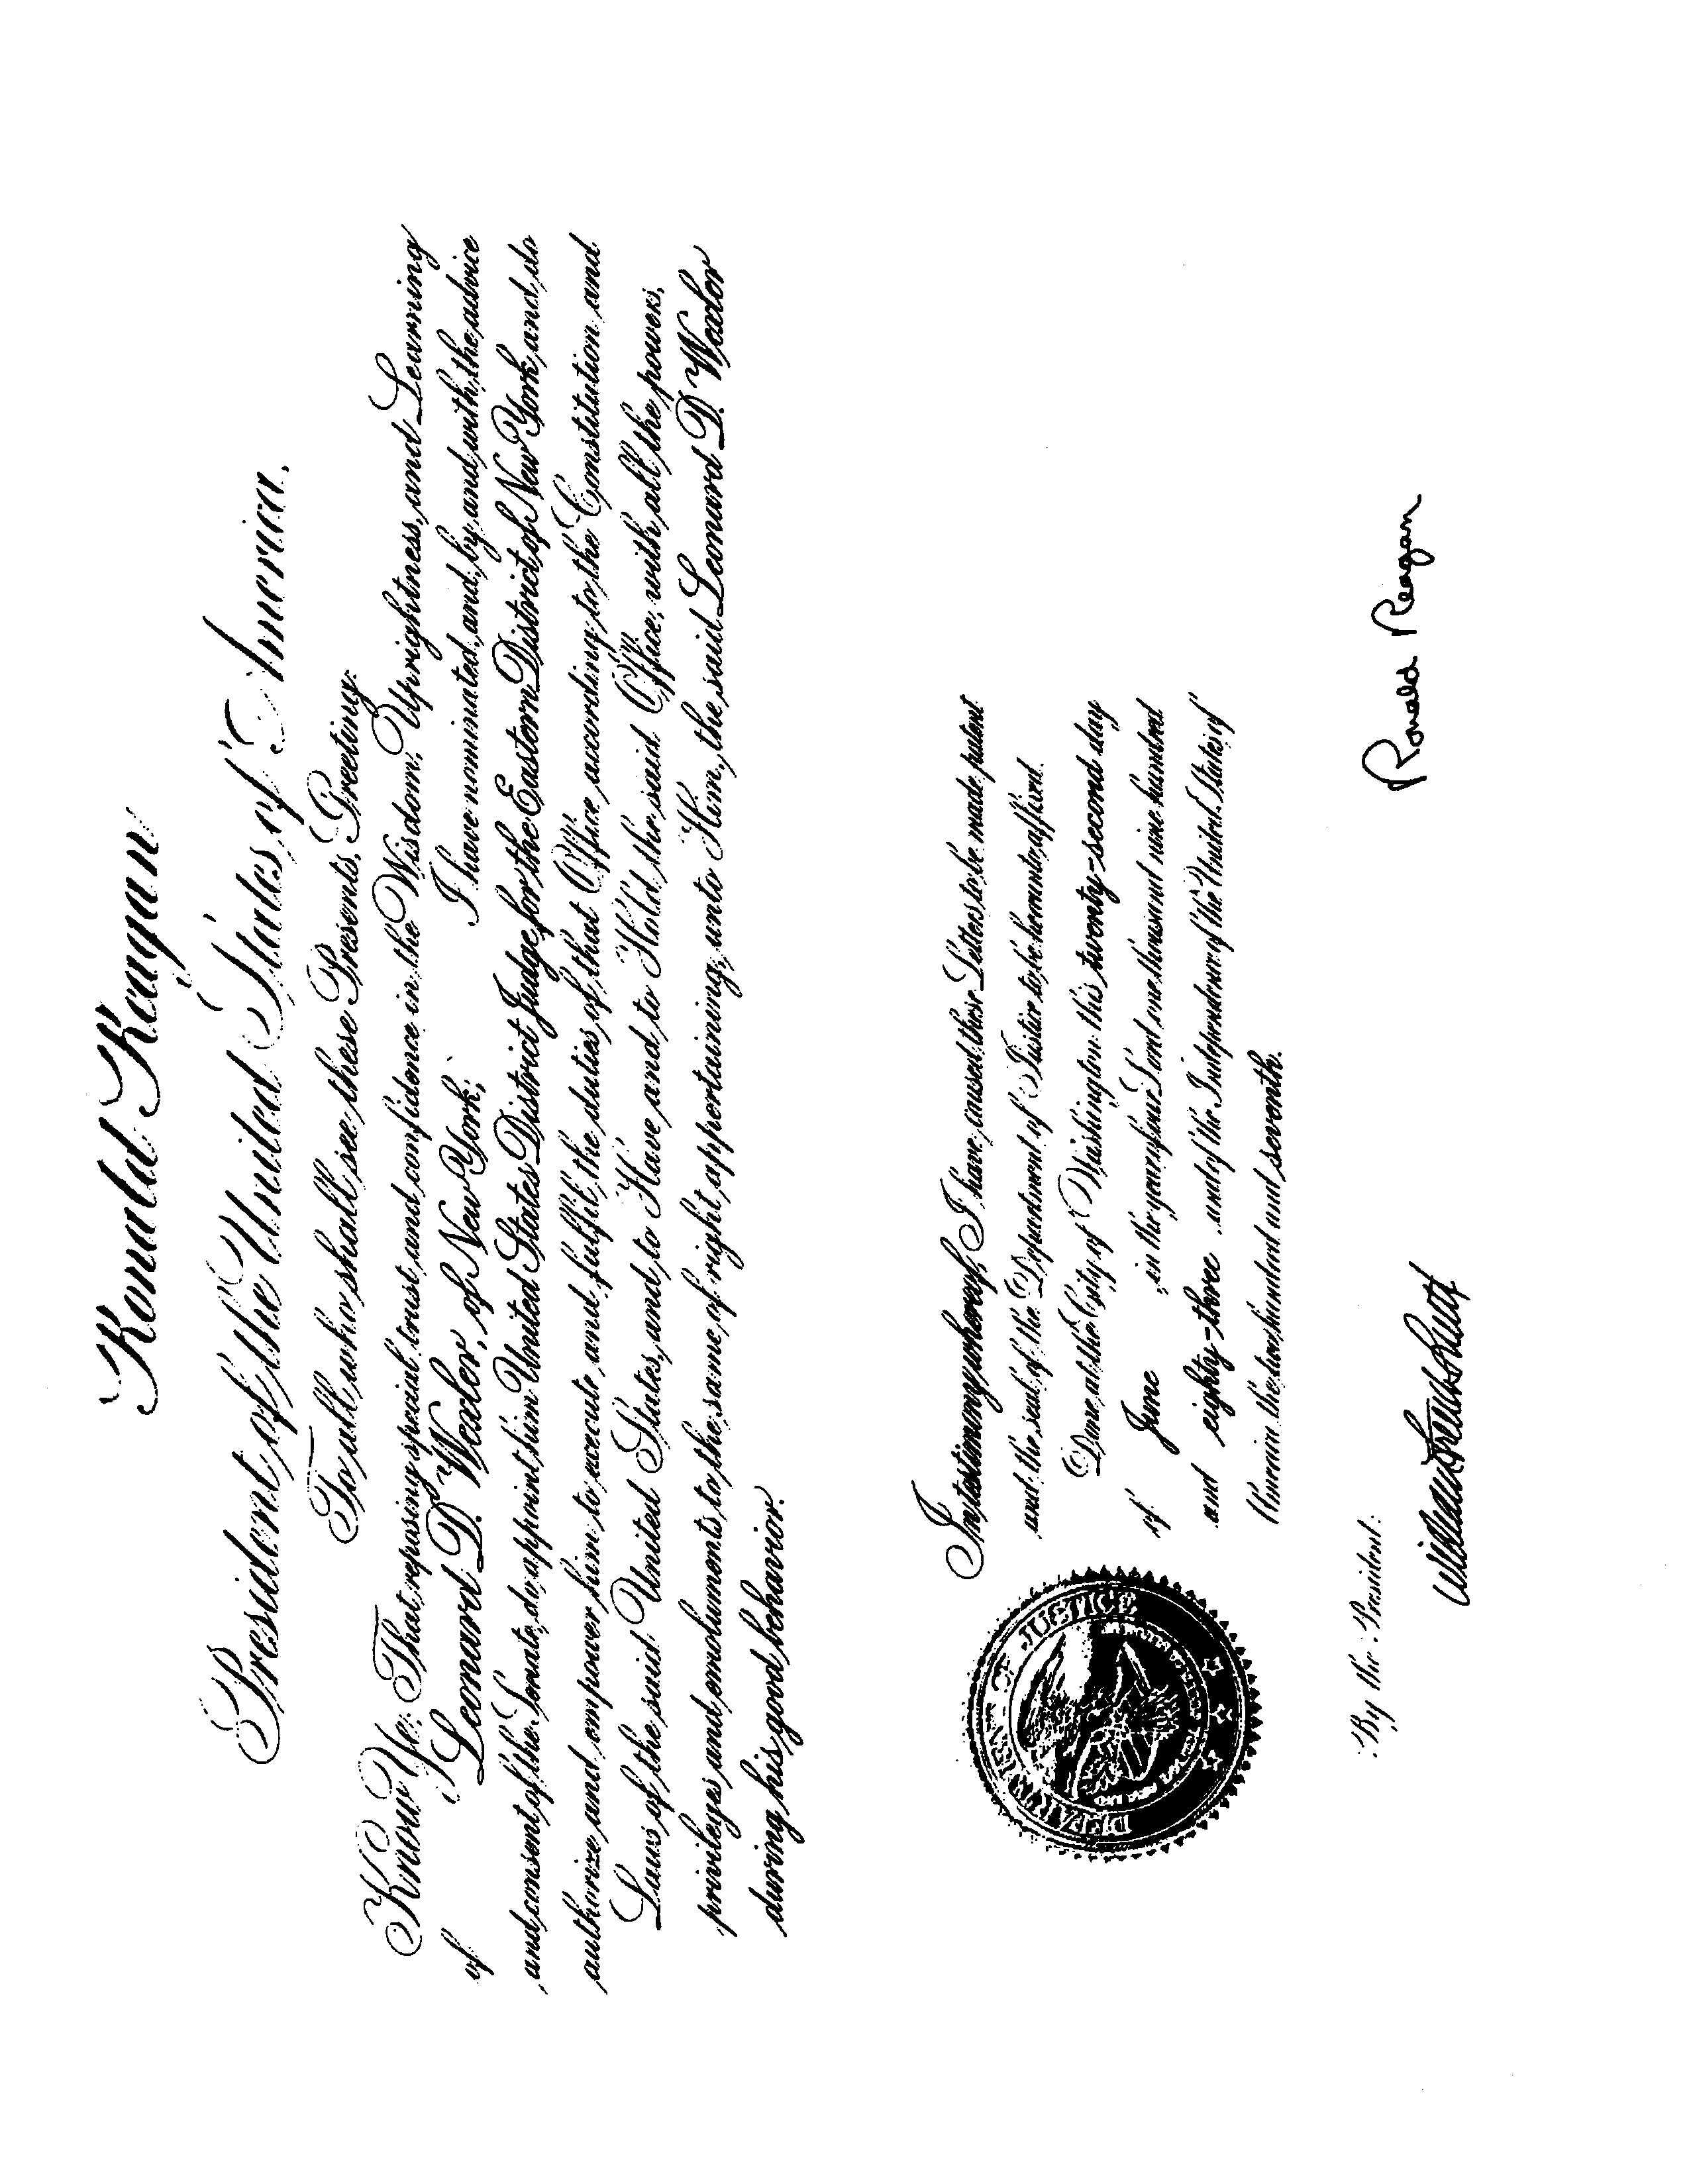 Ronald Reagan
President of the United States of America.
To all who shall see these Presents, Greeting:
Know Ye; That reposing special trust and confidence in the Wisdom, Uprightness, and Learning
of Leonard D. Wexler, of New York, I have nominated, and, by and with the advice
and consent of the Senate, do appoint him United States District Judge for the Eastern District of New York, and do
authorize and empower him to execute and fulfil the duties of that Office according to the Constitution and
Laws of the said United States, and to Have and to Hold the said Office, with all the powers,
privileges and emoluments to the same of right appertaining, unto Him, the said Leonard D. Wexler
during his good behavior.
In testimony whereof, I have caused these Letters to be made patent
and the seal of the Department of Justice to be hereunto affixed.
Done at the City of Washington this twenty-second day
of June in the year of our Lord one thousand nine hundred
and eighty-three and of the Independence of the United States of
America the two hundred and seventh.
DEPARTMENT OF JUSTICE
Ronald Reagan
By the President:
William French Smith